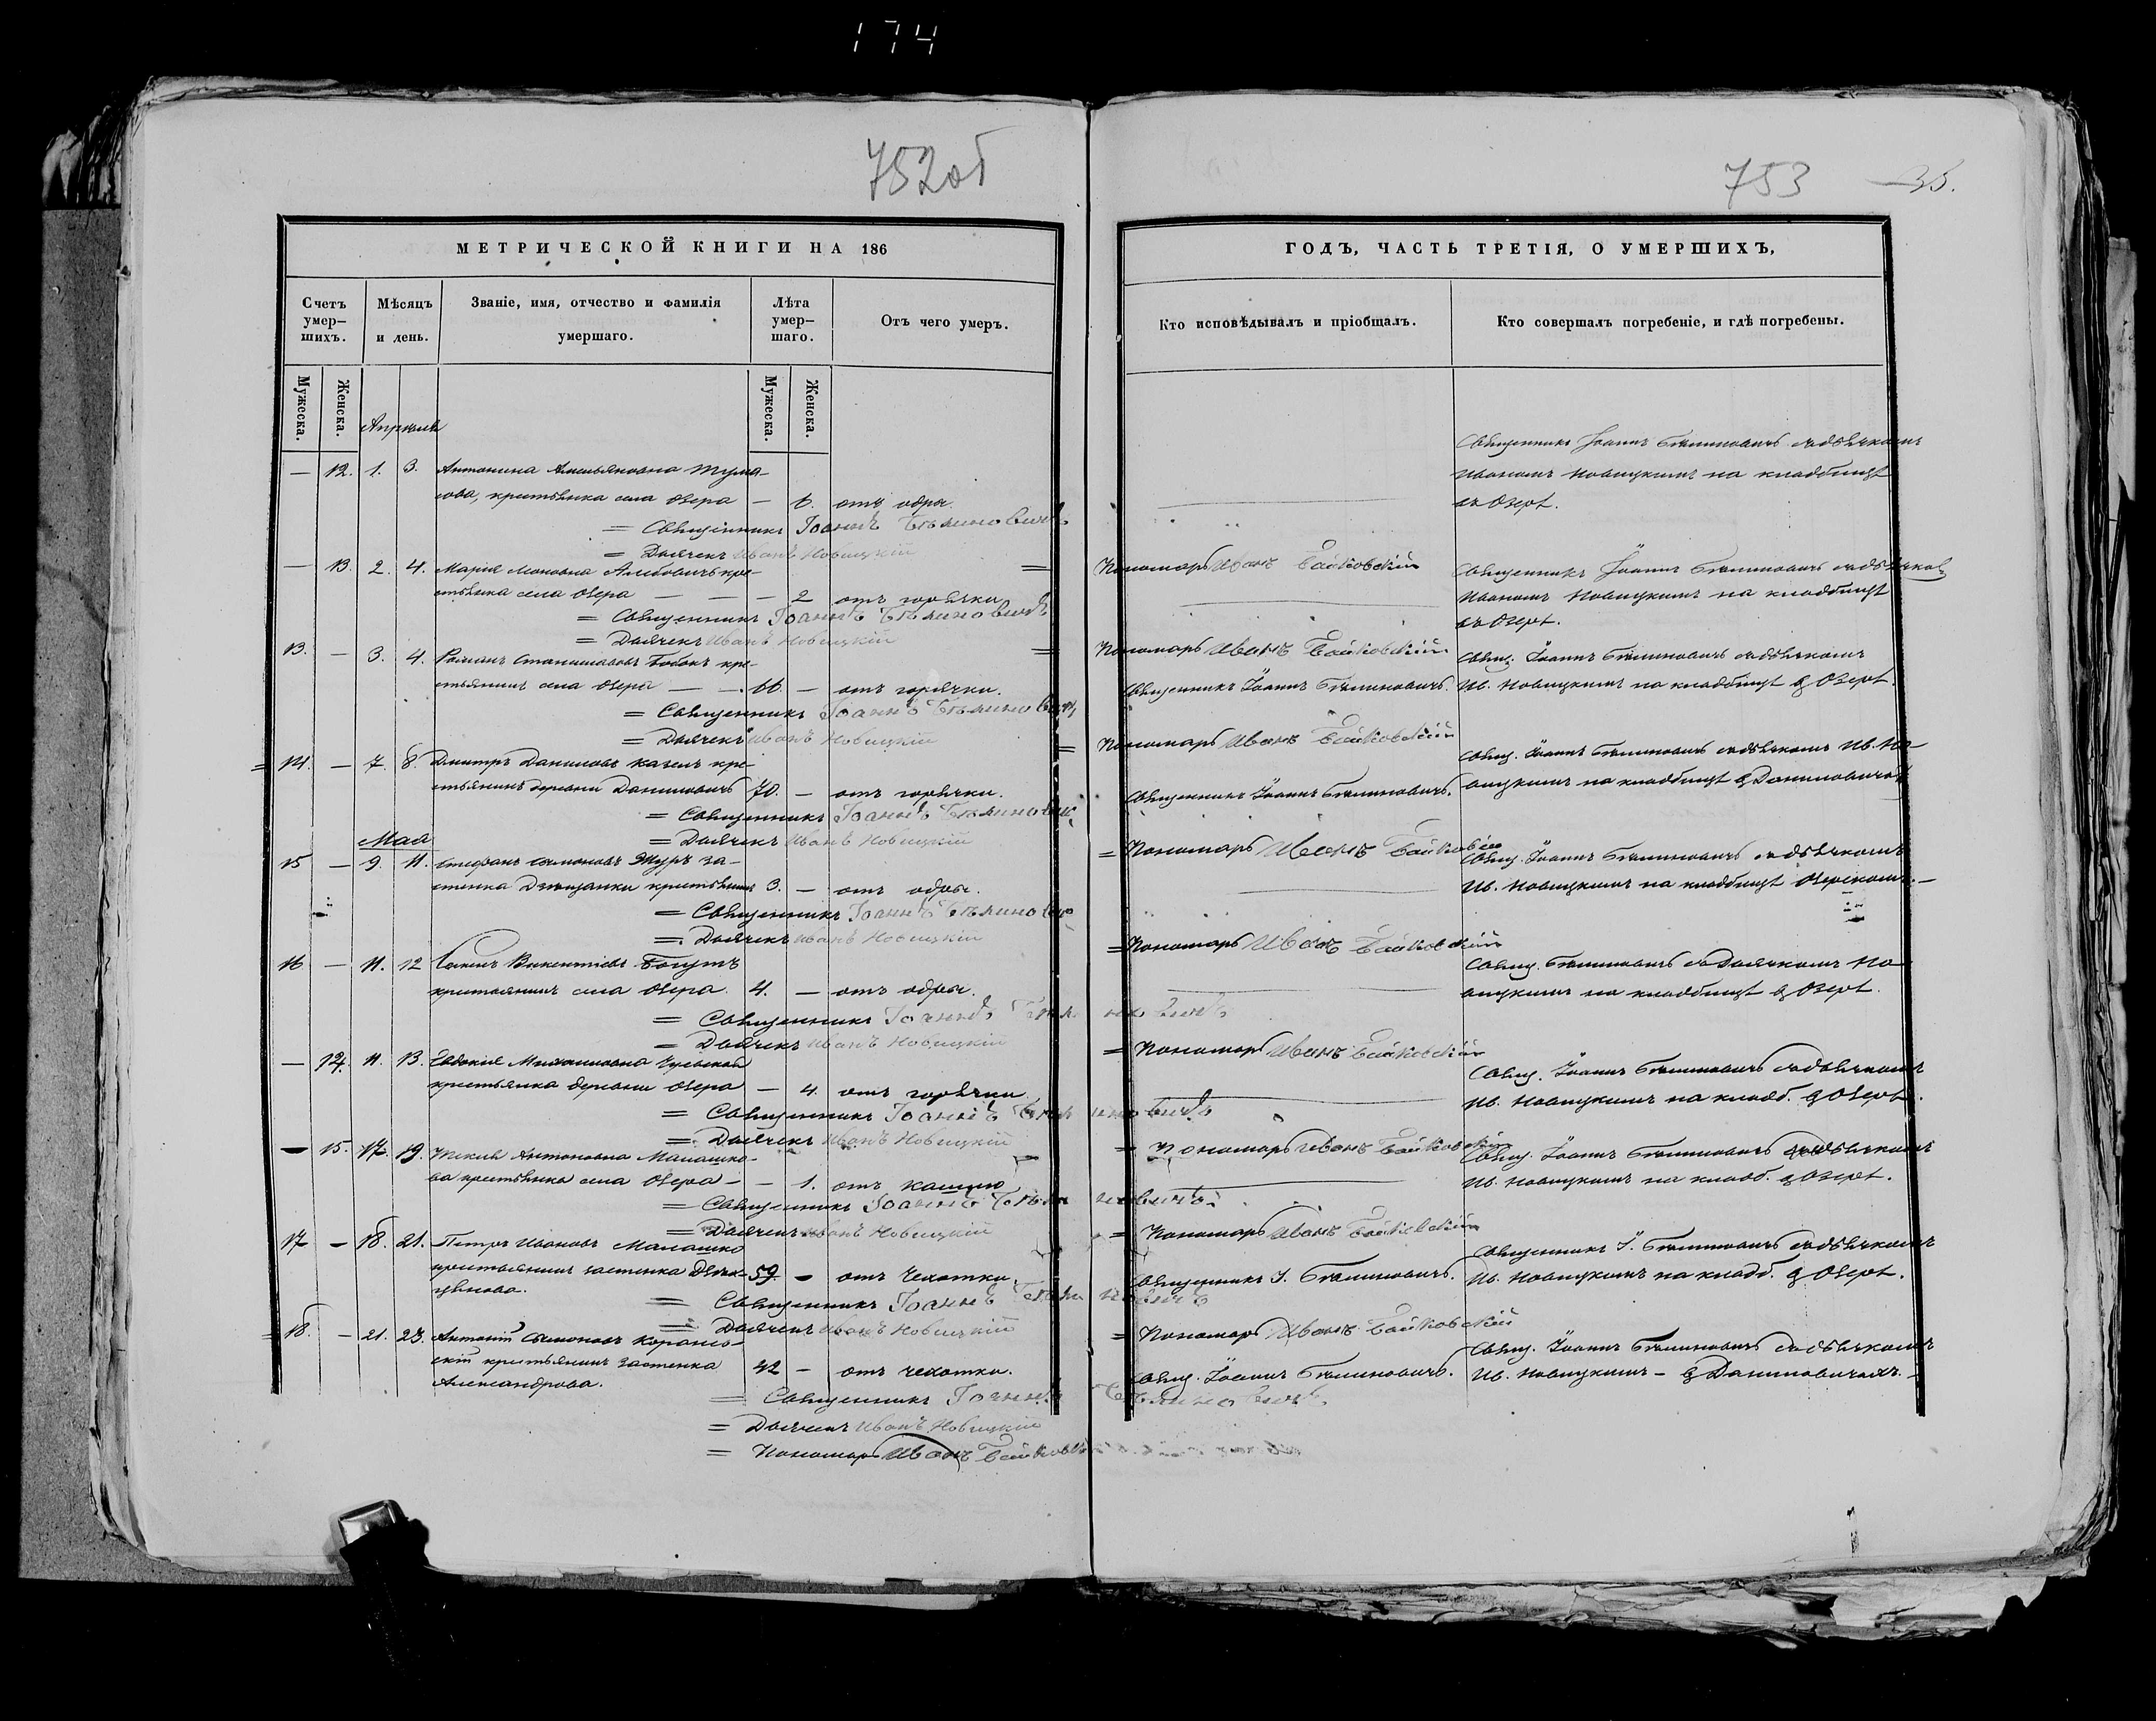 174
752об
753
35.
МЕТРИЧЕСКОЙ КНИГИ НА 186
ГОДЪ, ЧАСТЬ ТРЕТІЯ, О УМЕРШИХЪ,
Счетъ умер-
шихъ.
Мѣсяцъ
и день.
Званіе, имя, отчество и фамилія
умершаго.
Лѣта
умер-
шаго.
Отъ чего умеръ.
Кто исповѣдывалъ и пріобщалъ.
Кто совершалъ погребеніе, и гдѣ погребены.
Мужеска.
Женска.
Мужеска.
Женска.
Апрѣля
— 12. 1. 3. Антонина Амельяновна
крестьянка села Озера — 6. отъ одры.
Священникъ Іоаннъ Бѣлиновичъ съ дьячкомъ
Иваномъ Новицкимъ на кладбищѣ
въ Озерѣ.
= Священникъ Іоаннъ Бѣлиновичъ
= Дьячекъ Иванъ Новицкій
= Пономарь Иванъ Байковскій
— 13. 2. 4. Марія кре-
стьянка села Озера — — — 2 отъ горячки
Священникъ Іоаннъ Бѣлиновичъ съ дьячком
Иваномъ Новицкимъ на кладбищѣ
въ Озерѣ.
= Священникъ Іоаннъ Бѣлиновичъ
= Дьячекъ Иванъ Новицкій
= Пономарь Иванъ Байковскій
13. — 3. 4. Романъ Станиславовъ Бобокъ кре-
стьянинъ села Озера — — 66. — отъ горячки.
Священникъ Іоаннъ Бѣлиновичъ.
Свящ. Іоаннъ Бѣлиновичъ съ дьячкомъ
Ив. Новицкимъ на кладбищѣ въ Озерѣ.
= Священникъ Іоаннъ Бѣлиновичъ
= Дьячекъ Иванъ Новицкій
= Пономарь Иванъ Байковскій
14. — 7. 8. Дмитръ Даниловъ кре-
стьянинъ деревни Даниловичъ 70. — отъ горячки.
Священникъ Іоаннъ Бѣлиновичъ.
Свящ. Іоаннъ Бѣлиновичъ съ дьячкомъ Ив. Но-
вицкимъ на кладбищѣ въ Даниловичахъ
= Священникъ Іоаннъ Бѣлинович
= Дьячекъ Иванъ Новицкій
= Пономарь Иванъ Байковскій
Мая
15 — 9. 11. Стефанъ Семеновъ Журъ за-
стенка крестьянинъ 3. — отъ одры.
Свящ. Іоаннъ Бѣлиновичъ съ дьячкомъ
Ив. Новицкимъ на кладбищѣ Озерскомъ. —
= Священникъ Іоаннъ Бѣлинович
=. Дьячекъ Иванъ Новицкій
= Пономарь Иванъ Байковскій
16 — 11. 12 Викентіевъ
крестьянинъ села Озера. 4. — отъ одры.
Свящ. Бѣлиновичъ съ Дьячкомъ Но-
вицкимъ на кладбищѣ въ Озерѣ.
= Священникъ Іоаннъ Бѣлиновичъ
= Дьячекъ Иванъ Новицкій
= Пономарь Иванъ Байковскій
— 14. 11. 13. Евдокія Михаиловна
крестьянка деревни Озера — 4. отъ горячки
Свящ. Іоаннъ Бѣлиновичъ съ дьячкомъ
Ив. Новицкимъ на кладб. въ Озерѣ.
= Священникъ Іоаннъ Бѣлиновичъ
= Дьячекъ Иванъ Новицкій
= Пономарь Иванъ Байковскій
— 15. 17. 19. Антоновна Малашко-
ва крестьянка села Озера — — 1. отъ кашлю
Свящ. Іоаннъ Бѣлиновичъ съ дьячкомъ
Ив. Новицкимъ на кладб. въ Озерѣ.
= Священникъ Іоаннъ Бѣлиновичъ.
= Дьячекъ Иванъ Новицкій
= Пономарь Иванъ Байковскій
17 — 18. 21. Петръ Ивановъ Малашко
крестьянинъ застенка 59. — отъ Чехотки.
Священникъ І. Бѣлиновичъ.
Священникъ І. Бѣлиновичъ съ дьячкомъ
Ив. Новицкимъ на кладб. въ Озерѣ.
= Священникъ Іоаннъ Бѣлиновичъ
= Дьячекъ Иванъ Новицкій
= Пономарь Иванъ Байковскій
18. — 21. 23. Антоній Семеновъ
крестьянинъ застенка 42 — отъ чехотки.
Александрова.
Свящ. Іоаннъ Бѣлиновичъ.
Свящ. Іоаннъ Бѣлиновичъ съ дьячкомъ
Ив. Новицкимъ – въ Даниловичахъ. –
= Священникъ Іоаннъ Бѣлиновичъ.
= Дьячекъ Иванъ Новицкій
= Пономарь Иванъ Байковскій